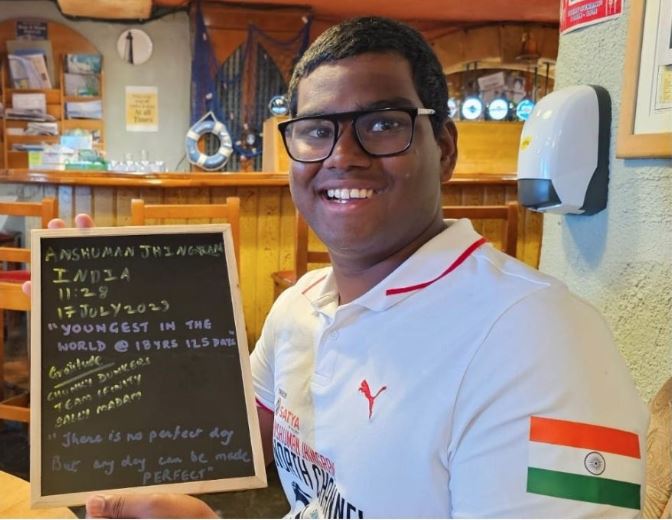 All
TIMES
ANSHUMAN JHINGRAN
INDIA
11:28
17 JULY 2023
"YOUNGEST IN THE
WORLD @ 18 YRS 125 DAYS"
Gratitude
CHUNKY DUNKERS
TEAM INFINITY
SALLY MADAM
"There is no perfect day
But any day can be made
PERFECT"
SATYA
ANSHUMAN JHINGRAN
NORTH CHANNEL